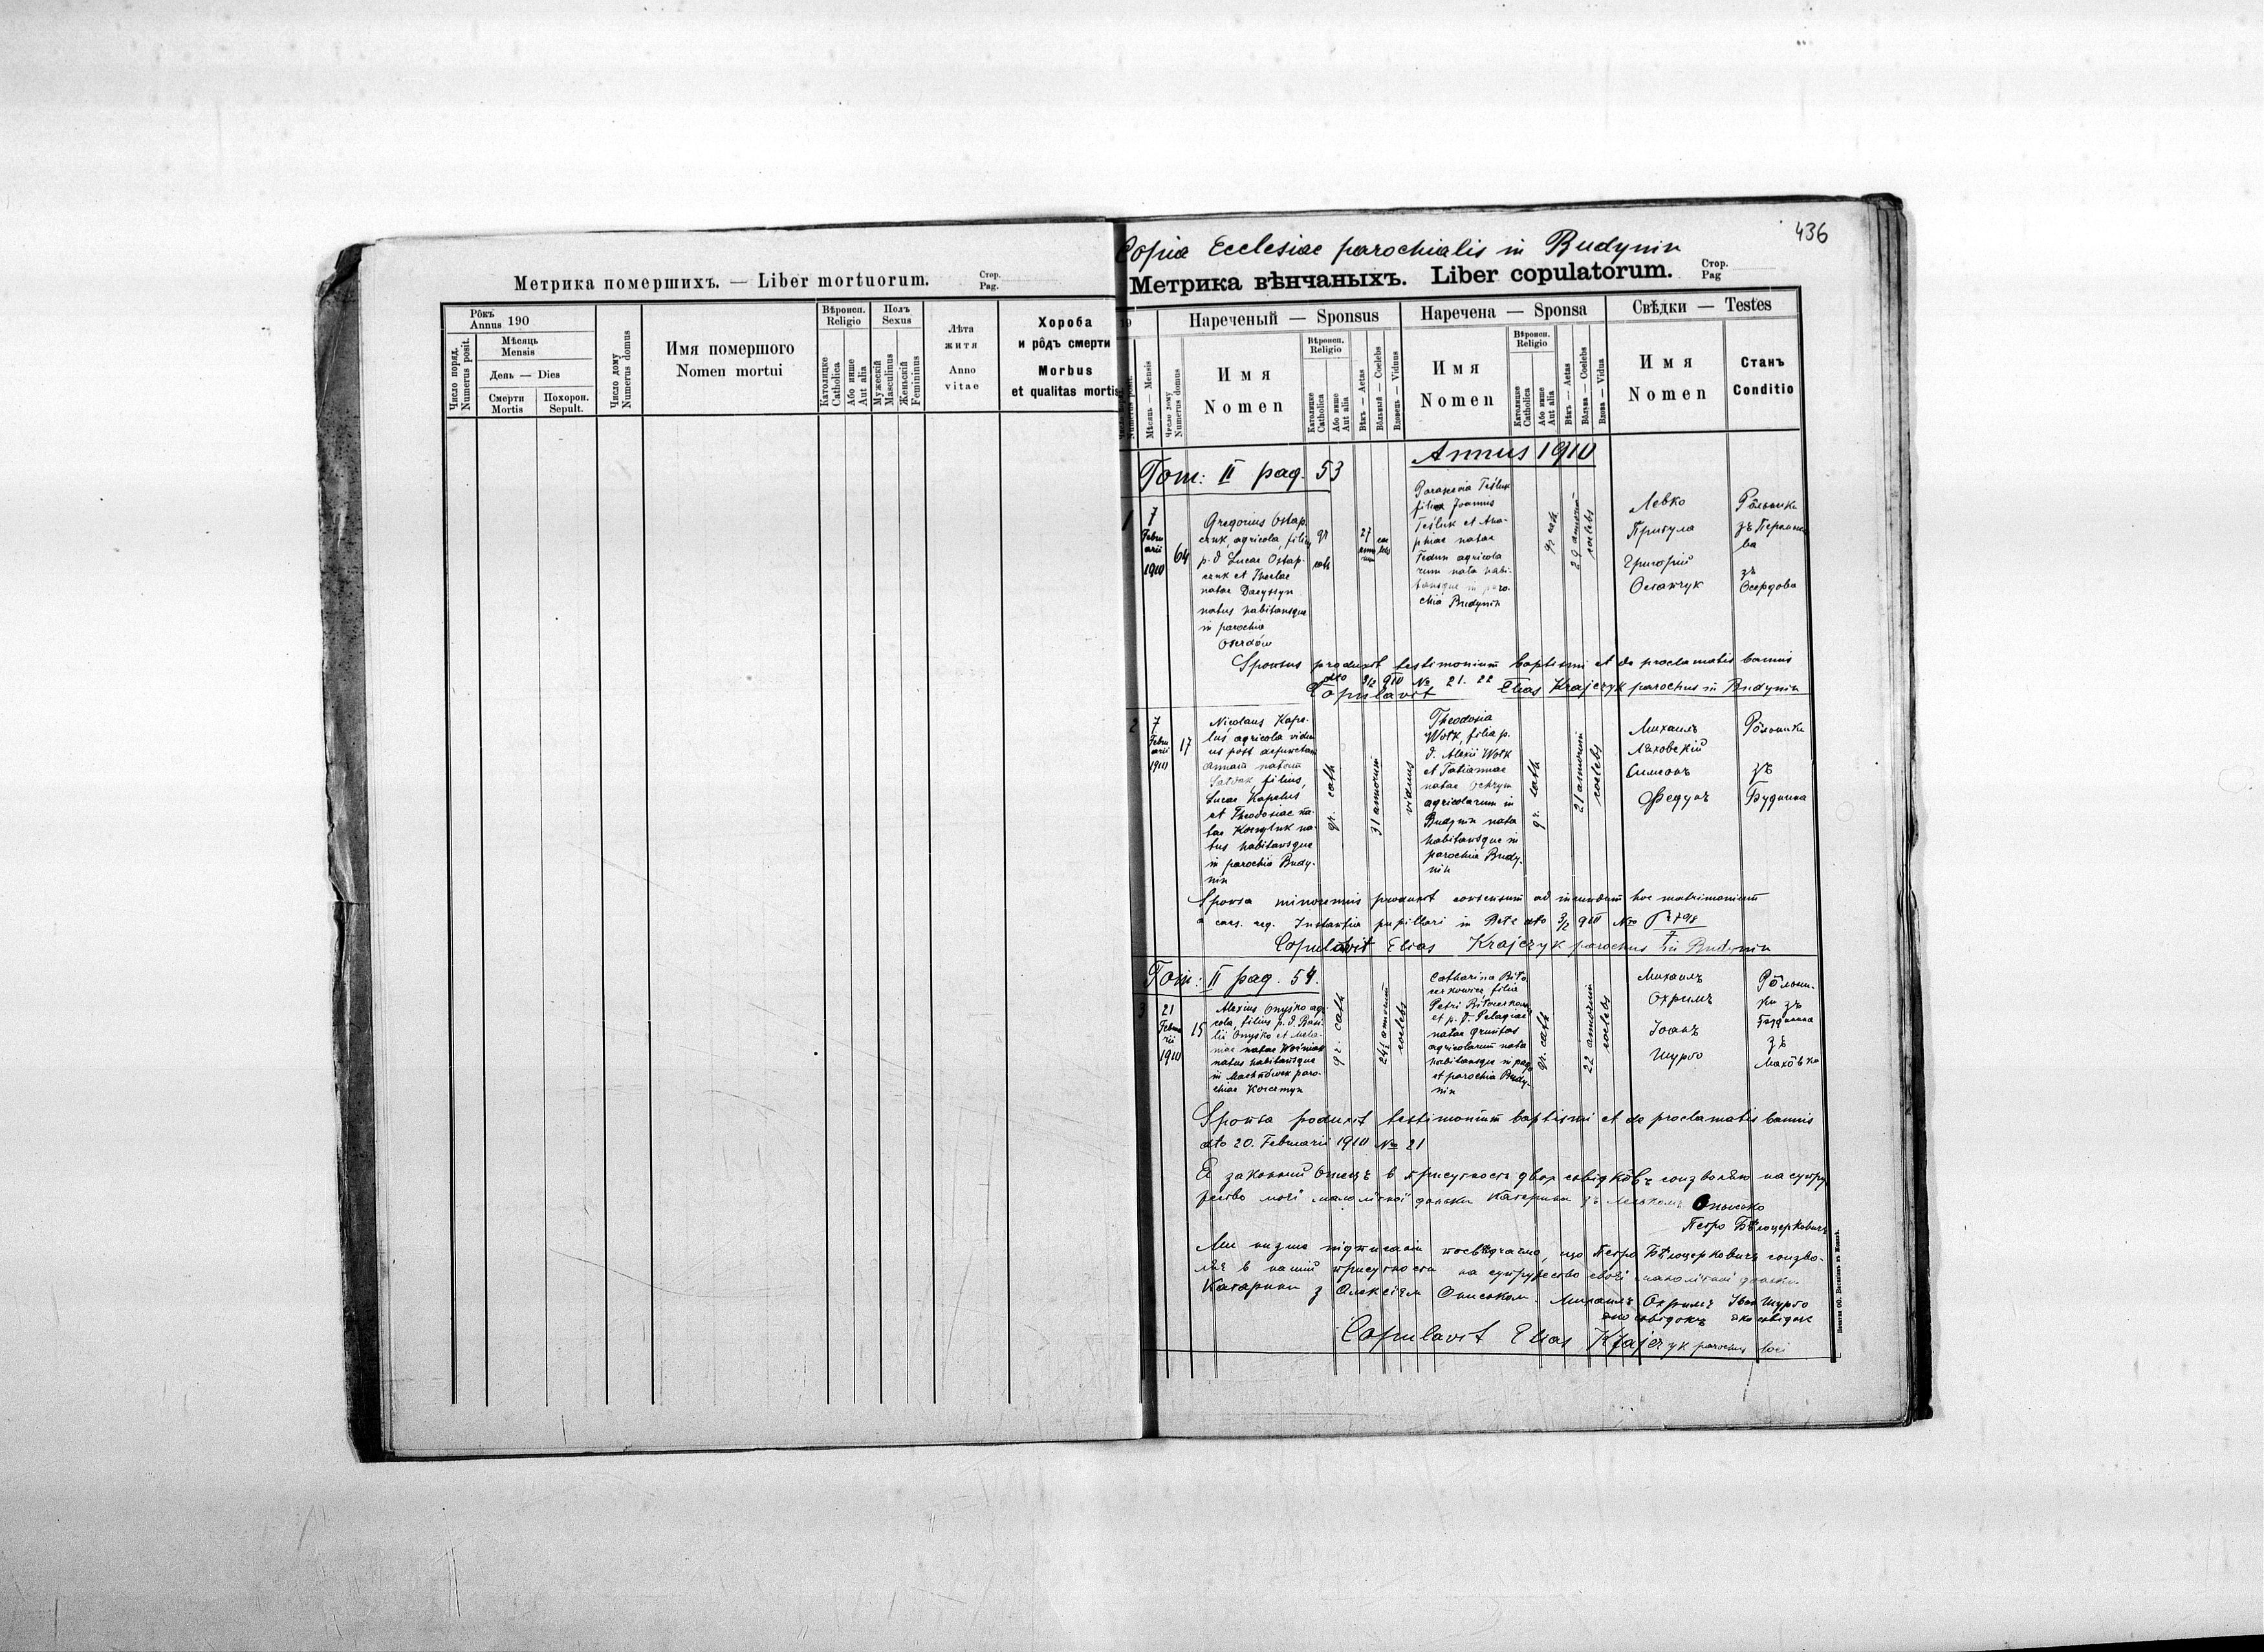 Метрика помершихъ. — Liber mortuorum.
Стор.
Pag.
Рôкъ
Annus 190
Мѣсяць
Mensis
День — Dies
Число поряд.
Numerus posit.
Смерти
Mortis
Похорон.
Sepult.
Число дому
Numerus domus
Имя помершого
Nomen mortui
Вѣроисп.
Religio
Католицке
Catholica
Або инше
Aut alia
Полъ
Sexus
Мужескій
Masculinus
Женьскій
Femininus
Лѣта
житя
Anno
vitae
Хороба
и рôдъ смерти
Morbus
et qualitas mortis
436
Copia Ecclesiae parochialis in Budynin
Метрика вѣнчаныхъ. Liber copulatorum.
Стор.
Pag
Мѣсяць — Mensis
Число дому
Numerus domus
Нареченый — Sponsus
Имя
Nomen
Вѣроисп.
Religio
Католицке
Catholica
Або инше
Aut alia
Вѣкъ — Aetas
Вôльный — Coelebs
Вдовець — Viduus
Наречена — Sponsa
Имя
Nomen
Вѣроисп.
Religio
Католицке
Catholica
Або инше
Aut alia
Вѣкъ — Aetas
Вôльна — Coelebs
Вдова — Vidua
Свѣдки — Testes
Имя
Nomen
Станъ
Conditio
Annus 1910
Tom: II pag. 53
1
7
Febru
arii
1910
64
Gregorius Ostap
czuk, agricola, filius
p. d Lucae Ostap-
czuk et Theclae
natae
natus habitansque
in parochia
Oserdów
gr
cath
27
anno
rum
coe
lebs
Parascevia Teśluk
filia Joannis
Teśluk et Ana-
natae
Fedun agricola
rum nata habi-
tansque in paro
chia Budynin
gr. cath
29 annorum
coelebs
Левко
Притула
Григорій
Остапчук
Рôльники
зъ
Осердова
Sponsus produxit testimonium baptismi et de proclamatis bannis
dto 3/2 910 No 21. 22
Copulavit Elias Krajczyk parochus in Budynin
2
7
Febru
arii
1910
17
Nicolaus Kape-
luś agricola vidu
us post defunctam
Annam natam
filius
Lucae Kapeluś
et Theodosiae na
tae
tus habitansque
in parochia Budy-
nin
gr. cath
31 annorum
viduus
Theodosia
Wołk, filia p.
d. Alexii Wołk
et Tatiannae
natae Ochrym
agricolarum in
Budynin nata
habitansque in
parochia Budy-
nin
gr. cath
21 annorum
coelebs
Михаилъ
Ляховскій
Симеонъ
Федунъ
Рôльники
зъ
Будинина
Sponsa minorennis produxit consensum ad ineundum hoc matrimonium
a caes. reg. Instantia pupillari in Bełz dto 3/2 910 No
Copulavit Elias Krajczyk parochus in Budynin
Tom: II pag. 54.
3
21
Febru
arii
1910
15
Alexius Onyśko agri
cola, filius p. d. Basi-
lii Onyśko et Mela-
niae natae Woźniak
natus habitansque
in Machnówek paro-
chiae Korczmyn
gr. cath
24½ annorum
coelebs
Catharina Biło
cerkowicz, filia
Petri Biłocerkow
et p. d. Pelagiae
natae
agricolarum nata
habitansque in pago
et parochia Budy-
nin
gr. cath
22 annorum
coelebs
Михаилъ
Охримъ
Іоанъ
Щурбо
Рôльни-
ки зъ
зъ
Махôвка
Sponsa poduxit testimonium baptismi et de proclamatis bannis
dto 20. Februarii 1910 No 21
Я законний Отецъ в присутности двох свідкôвъ соизволяю на супру
жество моєї малолітної доньки Катерини зъ Онисько
Петро Бѣлоцерковичъ
Ми низше підписані посвѣдчаємо, що Петро Бѣлоцерковичъ соизво-
ляє в нашій присутности на супружество своєї малолітної доньки
Катарини з Алексієм Ониськом. Михаилъ Охримъ Іван Щурбо
яко свідокъ яко свідок
Copulavit Elias Krajczyk parochus loci